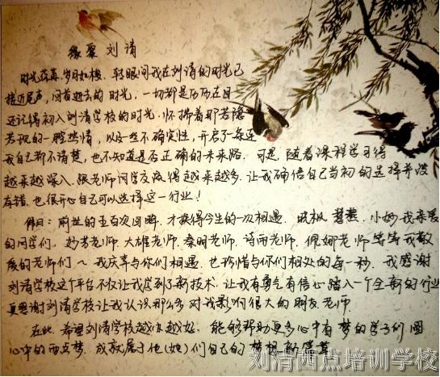 缘聚刘清
时光荏苒，岁月如梭，转眼间我在刘清的时光已
接近尾声，回首逝去的时光，一切都是历历在目
还记得初入刘清学校的时光，怀揣着那若隐
若现的一腔热情，以及一些不确定性，开启了一段连
我自己都不清楚，也不知道是否正确的未来路，可是，随着课程学习得
越来越深入，跟老师同学交流得越来越多，让我确信自己当初的选择并没
有错，也很开心自己可以选择这一行业！
佛曰：前世的五百次回眸，才换得今生的一次相遇，
的同学们，老师，大雄老师，老师，诗雨老师，佩娜老师等等我敬
爱的老师们～我庆幸与你们相遇，也珍惜与你们相处的每一秒，我感谢
刘清学校这个平台不仅让我学到了新技术，让我有勇气有信心踏入一个全新的行业
更感谢刘清学校让我认识那么多对我影响很大的朋友老师
在此，希望刘清学校越办越好，能够帮助更多心中有梦的学子们圆
心中的西点梦，成就属于他(她)们自己的梦想
刘清西点培训学校